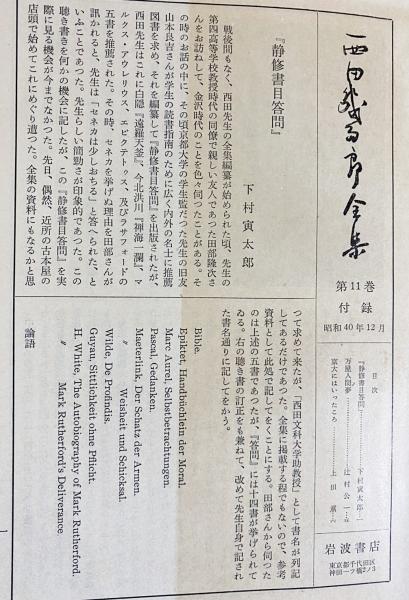 西田幾多郎全集
第11巻
付録
昭和40年12月
目次
『静修書目答問』……下村寅太郎…一
万屋人間夢……辻村公一…五
京大にはいったころ……上田薫…六
岩波書店
東京都千代田区
神田一ツ橋2ノ3
『静修書目答問』
下村寅太郎
戦後間もなく、西田先生の全集編纂が始められた頃、先生の
第四高等学校教授時代の同僚で親しい友人であつた田部隆次さ
んをお訪ねして、金沢時代のことを色々伺つたことがある。そ
の時のお話の中に、その頃京都大学の学生監だつた先生の旧友
山本良吉さんが学生の読書指南のために広く内外の名士に推薦
図書を求め、それを編纂して『静修書目答問』を出版されたが、
西田先生はこれに白隠『遠羅天釜』、今北洪川『禅海一瀾』、マ
ルクス・アウレリウス、エピクテトゥス、及びラサフォードの
五書を推薦された。その時、セネカを挙げぬ理由を田部さんが
訊かれると、先生は「セネカは少しおちる」と答へられた、と
いふことであつた。先生らしい簡勁さが印象的であつた。この
聴き書きを何かの機会に記したが、この『静修書目答問』を実
際に見る機会が今までなかつた。先日、偶然、近所の古本屋の
店頭で始めてこれにめぐり遭つた。全集の資料にもなるかと思
つて求めて来たが、「西田文科大学助教授」として書名が列記
してあるだけであつた。全集に掲載する程でもないので、参考
資料として此処で記してをくことにする。田部さんから伺つた
のは上述の五書であつたが、『答問』には十四書が挙げられて
ゐる。右の聴き書の訂正をも兼ねて、改めて先生自身で記され
た書名通りに記してをかう。
Bible.
Epiktet, Handbüchlein der Moral.
Marc Aurel, Selbstbetrachtungen.
Pascal, Gedanken.
Maeterlink, Der Schatz der Armen.
〃 Weisheit und Schicksal.
Wilde, De Profindis.
Guyau, Sittlichkeit ohne Pflicht.
H. White, The Autobiography of Mark Rutherford.
〃 Mark Rutherford's Deliverance
論語
1